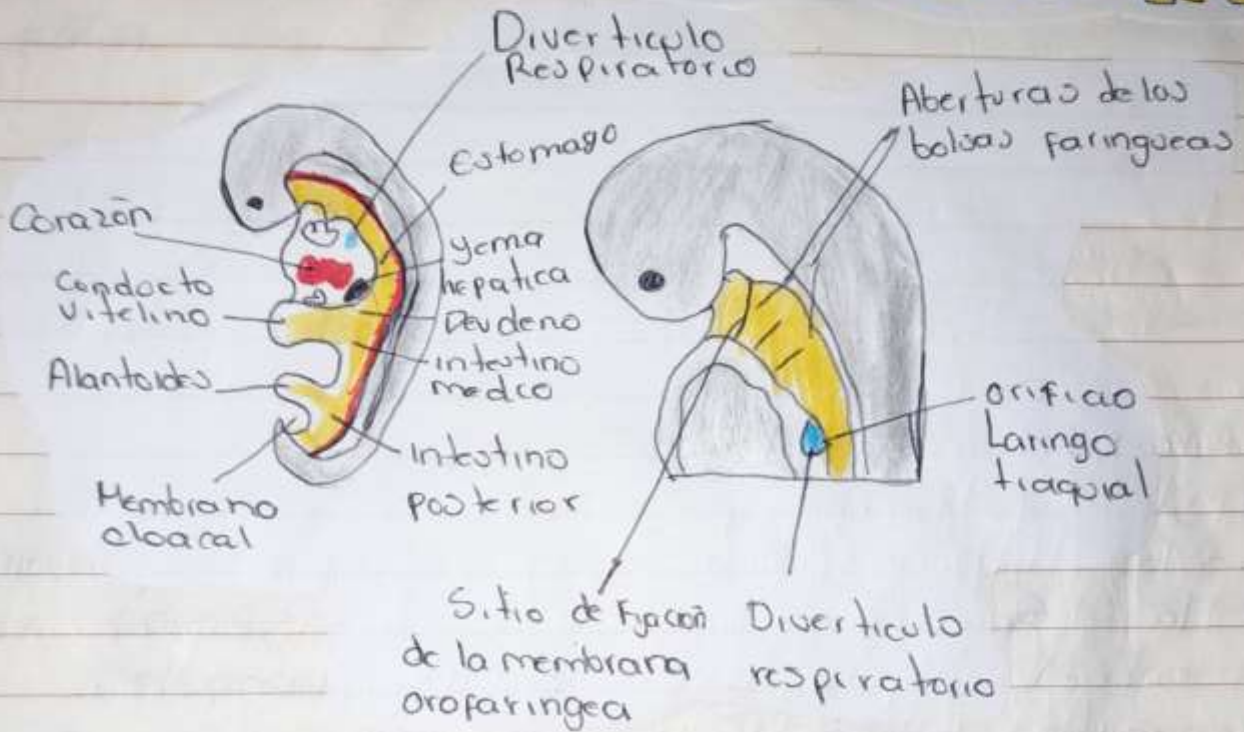 Diverticulo
Respiratorio
Estomago
Corazón
yema
hepatica
Conducto
vitelino
Deudeno
intestino
medio
Alantoides
Intestino
posterior
Membrana
cloacal
Aberturas de las
bolsas faringueas
orificio
Laringo
traquial
Sitio de Fijación
de la membrana
orofaringea
Diverticulo
respiratorio